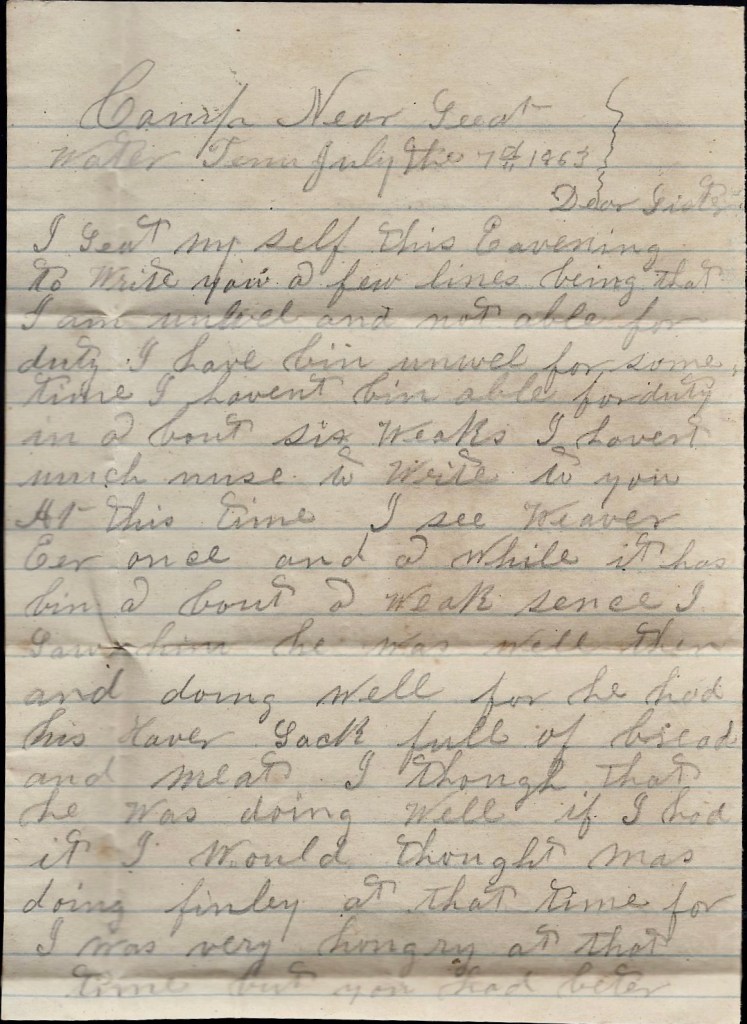 Camp Near Seeat
Water Tenn July the 7th 1863
Dear Sister
I Seat my self this Eavening
to Write you a few lines being that
I am unwel and not able for
duty I have bin unwel for some
time I havent bin able for duty
in a bout six Weaks I havent
much nuse to Write to you
At this time I see Weaver
Eer once and a While it has
bin a bout a Weak sence I
Saw him he was well then
and doing Well for he had
his Haver Sack full of bread
and meat I though that
he Was doing Well if I had
it I Would thought I was
doing finley at that time for
I was very hongry at that
time but you had beter